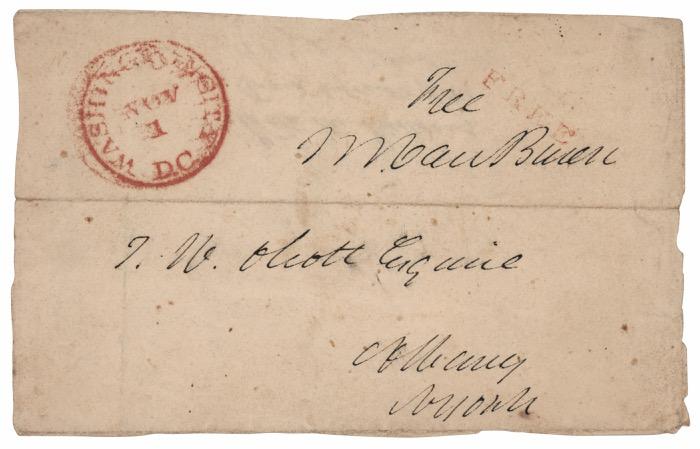 WASHINGTON CITY
NOV
1
D.C.
FREE
Free
M Van Buren
T. W. Olcott Esquire
Albany
N York